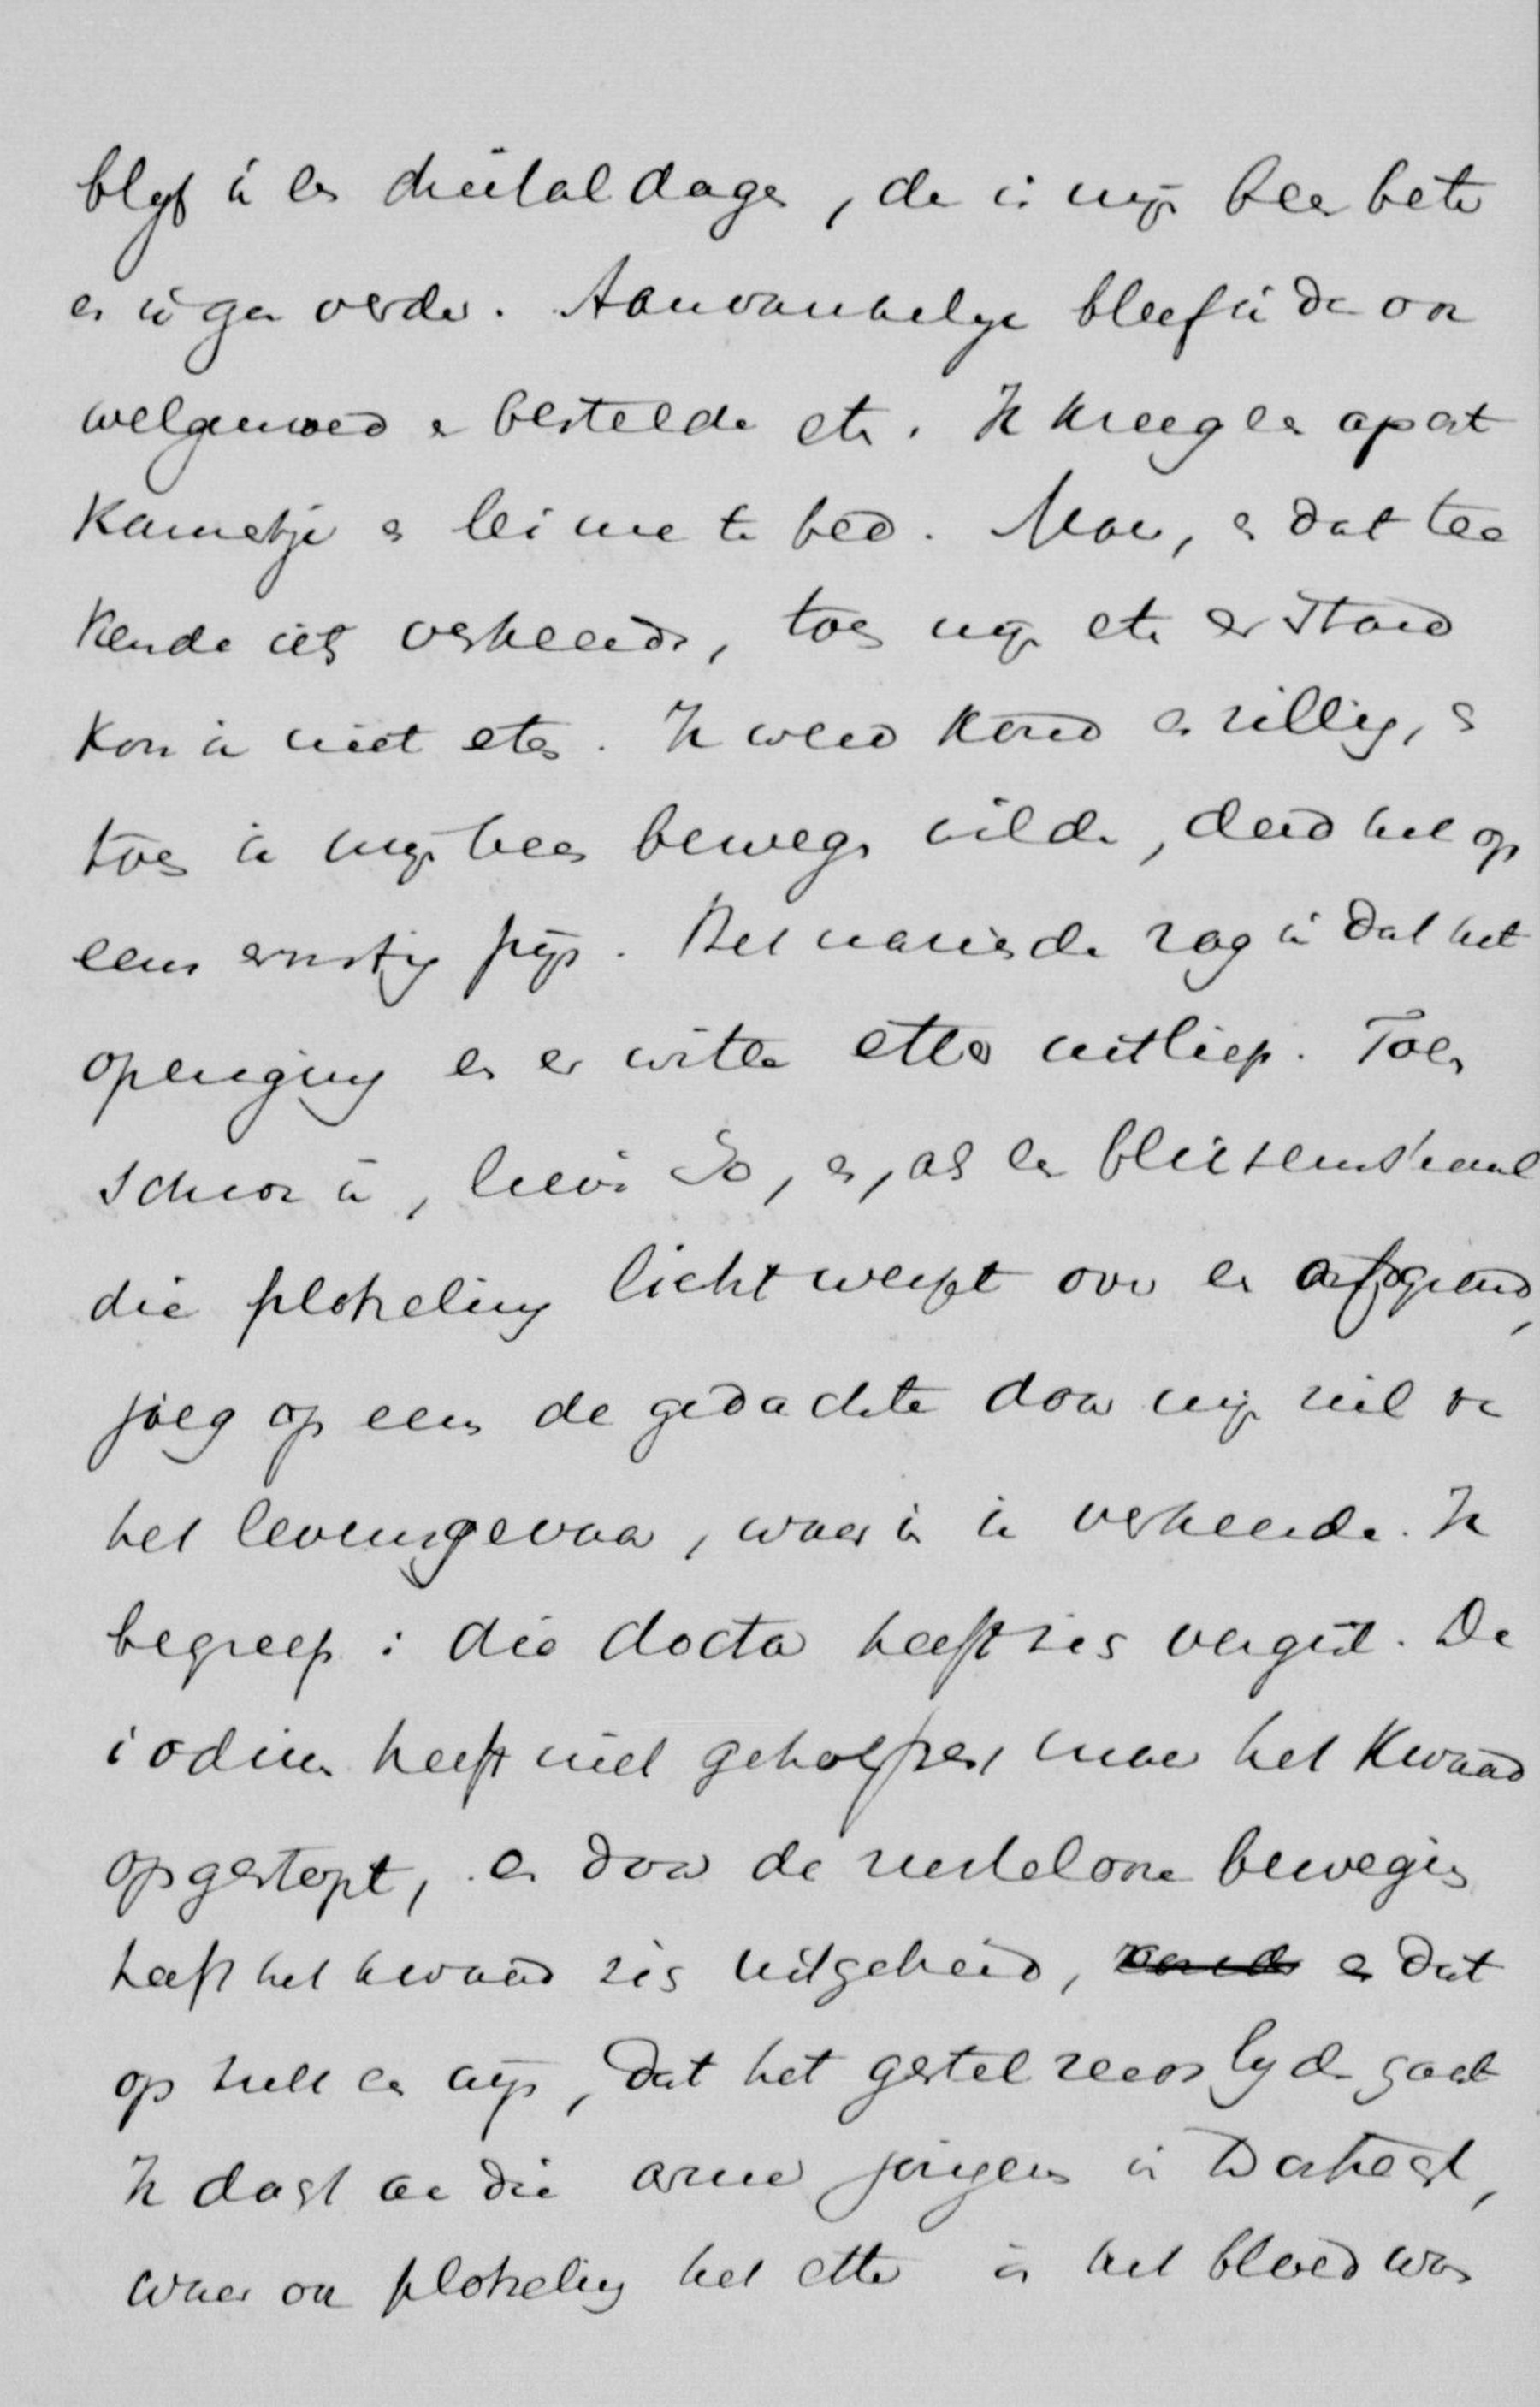 blyf ik een drietal dagen, dan is mijn been beter
en ik ga verder. Aanvankelijk bleef ik dan ook
welgemoed en bestelde eten. Ik kreeg een apart
kamertje en lei me te bed. Maar, en dat tee
kende iets verkeerds, toen mijn eten er stond
kon ik niet eten. Ik werd koud en rillig, en
toen ik mijn been bewegen wilde, deed het op
eens ernstig pijn. Bet nader zag ik dat het
openging en er witte etter uitliep. Toen
schrok ik, lieve Jo, en, als een bliksemstraal
die plotseling licht werpt over een afgrond,
joeg op eens de gedachte door mijn ziel van
het levensgevaar, waar ik in verkeerde. Ik
begreep: die docter heeft zich vergist. De
iodium heeft niet geholpen, maar het kwaad
opgestopt, en door de rustelooze beweging
heeft het kwaad zich uitgebreid, en dat
op zulk een wijs, dat het gestel zeer lyden gaat
Ik dacht aan die arme jongen in
waar ook plotseling het etter in het bloed was